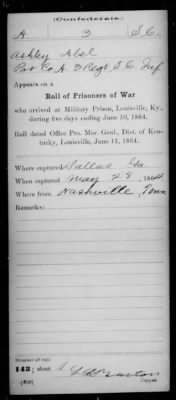 (Confederate.)
A 3 S.C.
Ashley Abel
Pvt Co A. 3 Regt. S.C. Inf
Appears on a
Roll of Prisoners of War
who arrived at Military Prison, Louisville, Ky.,
during five days ending June 10, 1864.
Roll dated Office Pro. Mar. Genl., Dist. of Ken-
tucky, Louisville, June 11, 1864.
Where captured Dallas Ga.
When captured May 28, 1864.
Where from Nashville, Tenn
Remarks:
Number of roll:
142; sheet
Copyist.